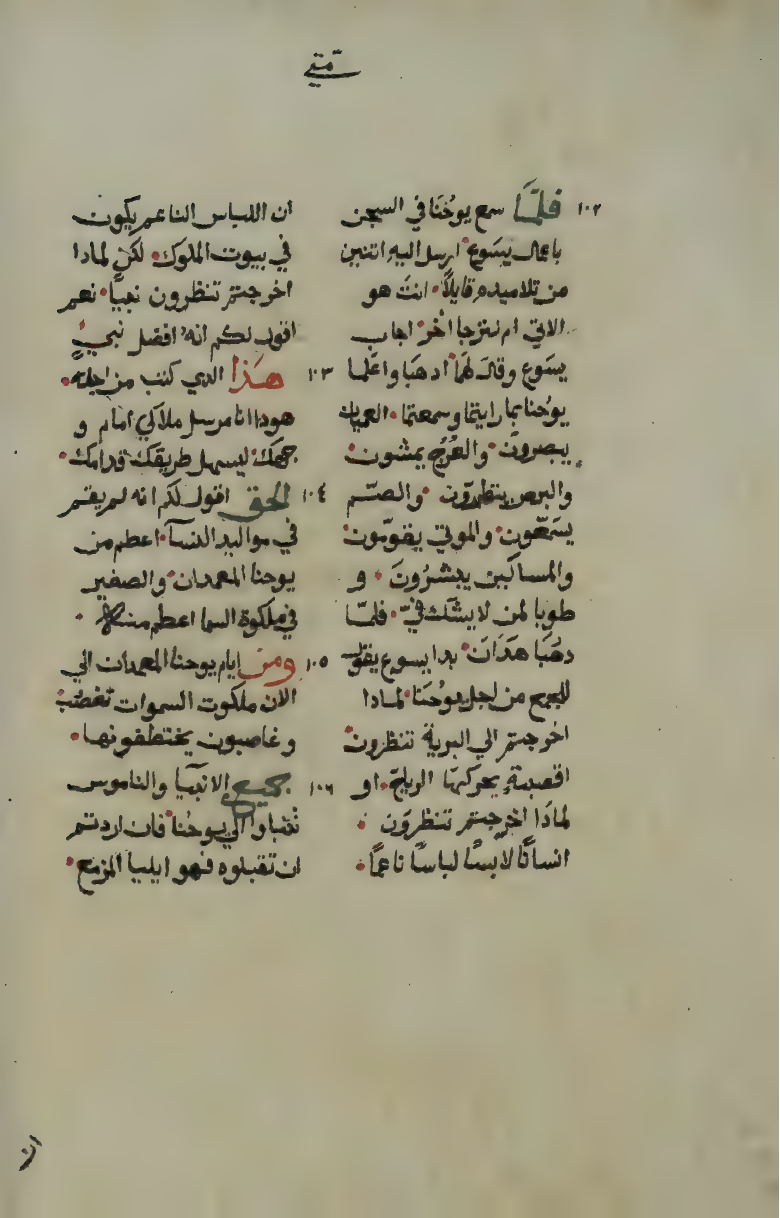 متي
١٠٢ فلمَّا سمع يوحُنَا في السجن
باعمال يسَوع ارسل اليه اتنين
من تلاميده قايلاً انتَ هو
الاتي ام نترجا اخر اجاب
يسَوع وقال لهَما ادهَبا واعَلما
يوحُنا بما رايتما وسمعتما العميان
يبصرون والعُرج يمشون
والبرص يتطهرّون والصّم
يسَمعون والموتي يقوّمون
والمساكين يبشرُونَ و
طوبا لمن لا يشَك فيّ فلمّا
دهُبَا هَدَانَ بدا يسوع يقول
للجمع من اجل يوُحَنا لمادا
اخرجتم الي البرية تنظرون
اقصبة يحركهّا الرياحّ او
لمادَا اخرجتم تنظروَن
انسانًا لابسًا لباسًا ناعمًا
ان اللباس الناعم يكون
في بيوت الملوك لكن لمادا
اخرجتم تنظرون نبيًا نعم
اقول لكم انه افضل نبيٍ
١٠٣ هَذا الدي كتب من اجله
هودا انا مرسل ملاكي امام و
جهك ليسهل طريقك قدامك
١٠٤ الحق اقول لكم انه لم يقم
في مواليد النسآ اعطم من
يوحنا المعمدان والصغير
في ملكوة السما اعطم منه
١٠٥ ومن ايام يوحنا المعمدان الي
الان ملكوت السموات تغصَب
وغاصبون يختطفونها
١٠٦ جميع الانبيآ والناموس
تنباوا الي يوحنا فان اردتم
ان تقبلوه فهو ايليا المزمع
ان